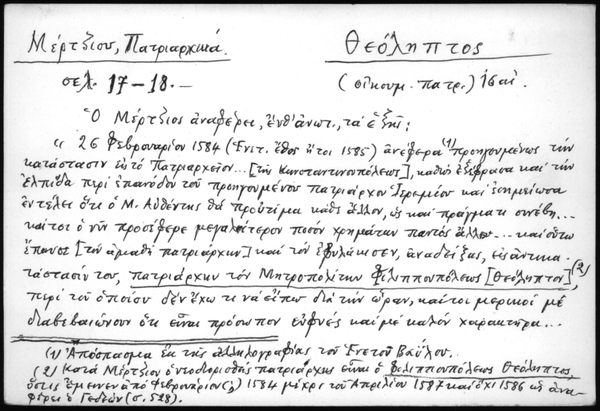 Μέρτζιου, Πατριαρχικά. Θεόληπτος
σελ. 17-18.— (οἰκουμ. πατρ.) 16 αἰ.
Ὁ Μέρτζιος ἀναφέρει, ἔνθ' ἀνωτ., τὰ ἑξῆς:
"26 Φεβρουαρίου 1584 (Ἑνετ. ἔθος ἤτοι 1585) ἀνέφερα (1) προηγουμένως τὴν
κατάστασιν εἰς τὸ Πατριαρχεῖον... [τῆς Κωνσταντινουπόλεως], καθὼς ἐξέφρασα καὶ τὴν
ἐλπίδα περὶ ἐπανόδου τοῦ προηγουμένου πατριάρχου Ἱερεμίου καὶ ἐσημείωσα
ἐντελῶς ὅτι ὁ Μ. Αὐθέντης θὰ προὐτίμα κάθε ἄλλον, ὡς καὶ πράγματι συνέβη...
καίτοι ὁ νῦν προσέφερε μεγαλείτερον ποσὸν χρημάτων παντὸς ἄλλου... καὶ οὕτω
ἔπαυσε [τὸν ἀμαθῆ πατριάρχην] καὶ τὸν ἐφυλάκισεν, ἀναδείξας, εἰς ἀντικα-
τάστασίν του, πατριάρχην τὸν Μητροπολίτην Φιλιππουπόλεως [Θεόληπτον], (2)
περὶ τοῦ ὁποίου δὲν ἔχω τι νὰ εἴπω διὰ τὴν ὥραν, καίτοι μερικοί με
διαβεβαιώνουν ὅτι εἶναι πρόσωπον εὐφυὲς καὶ μὲ καλὸν χαρακτῆρα...
(1) Ἀπόσπασμα ἐκ τῆς ἀλληλογραφίας τοῦ Ἑνετοῦ Βαΐλου.
(2) Κατὰ Μέρτζιον ὁ νεοδιορισθεὶς πατριάρχης εἶναι ὁ Φιλιππουπόλεως Θεόληπτος,
ὅστις ἔμεινεν ἀπὸ Φεβρουαρίου(;) 1584 μέχρι τοῦ Ἀπριλίου 1587 καὶ ὄχι 1586 ὡς ἀνα-
φέρει ὁ Γεδεὼν (σ. 528).